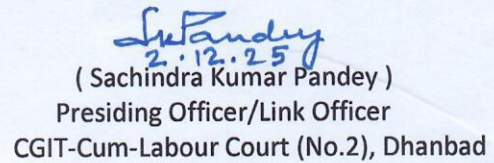 SKPandey
2.12.25
( Sachindra Kumar Pandey )
Presiding Officer/Link Officer
CGIT-Cum-Labour Court (No.2), Dhanbad